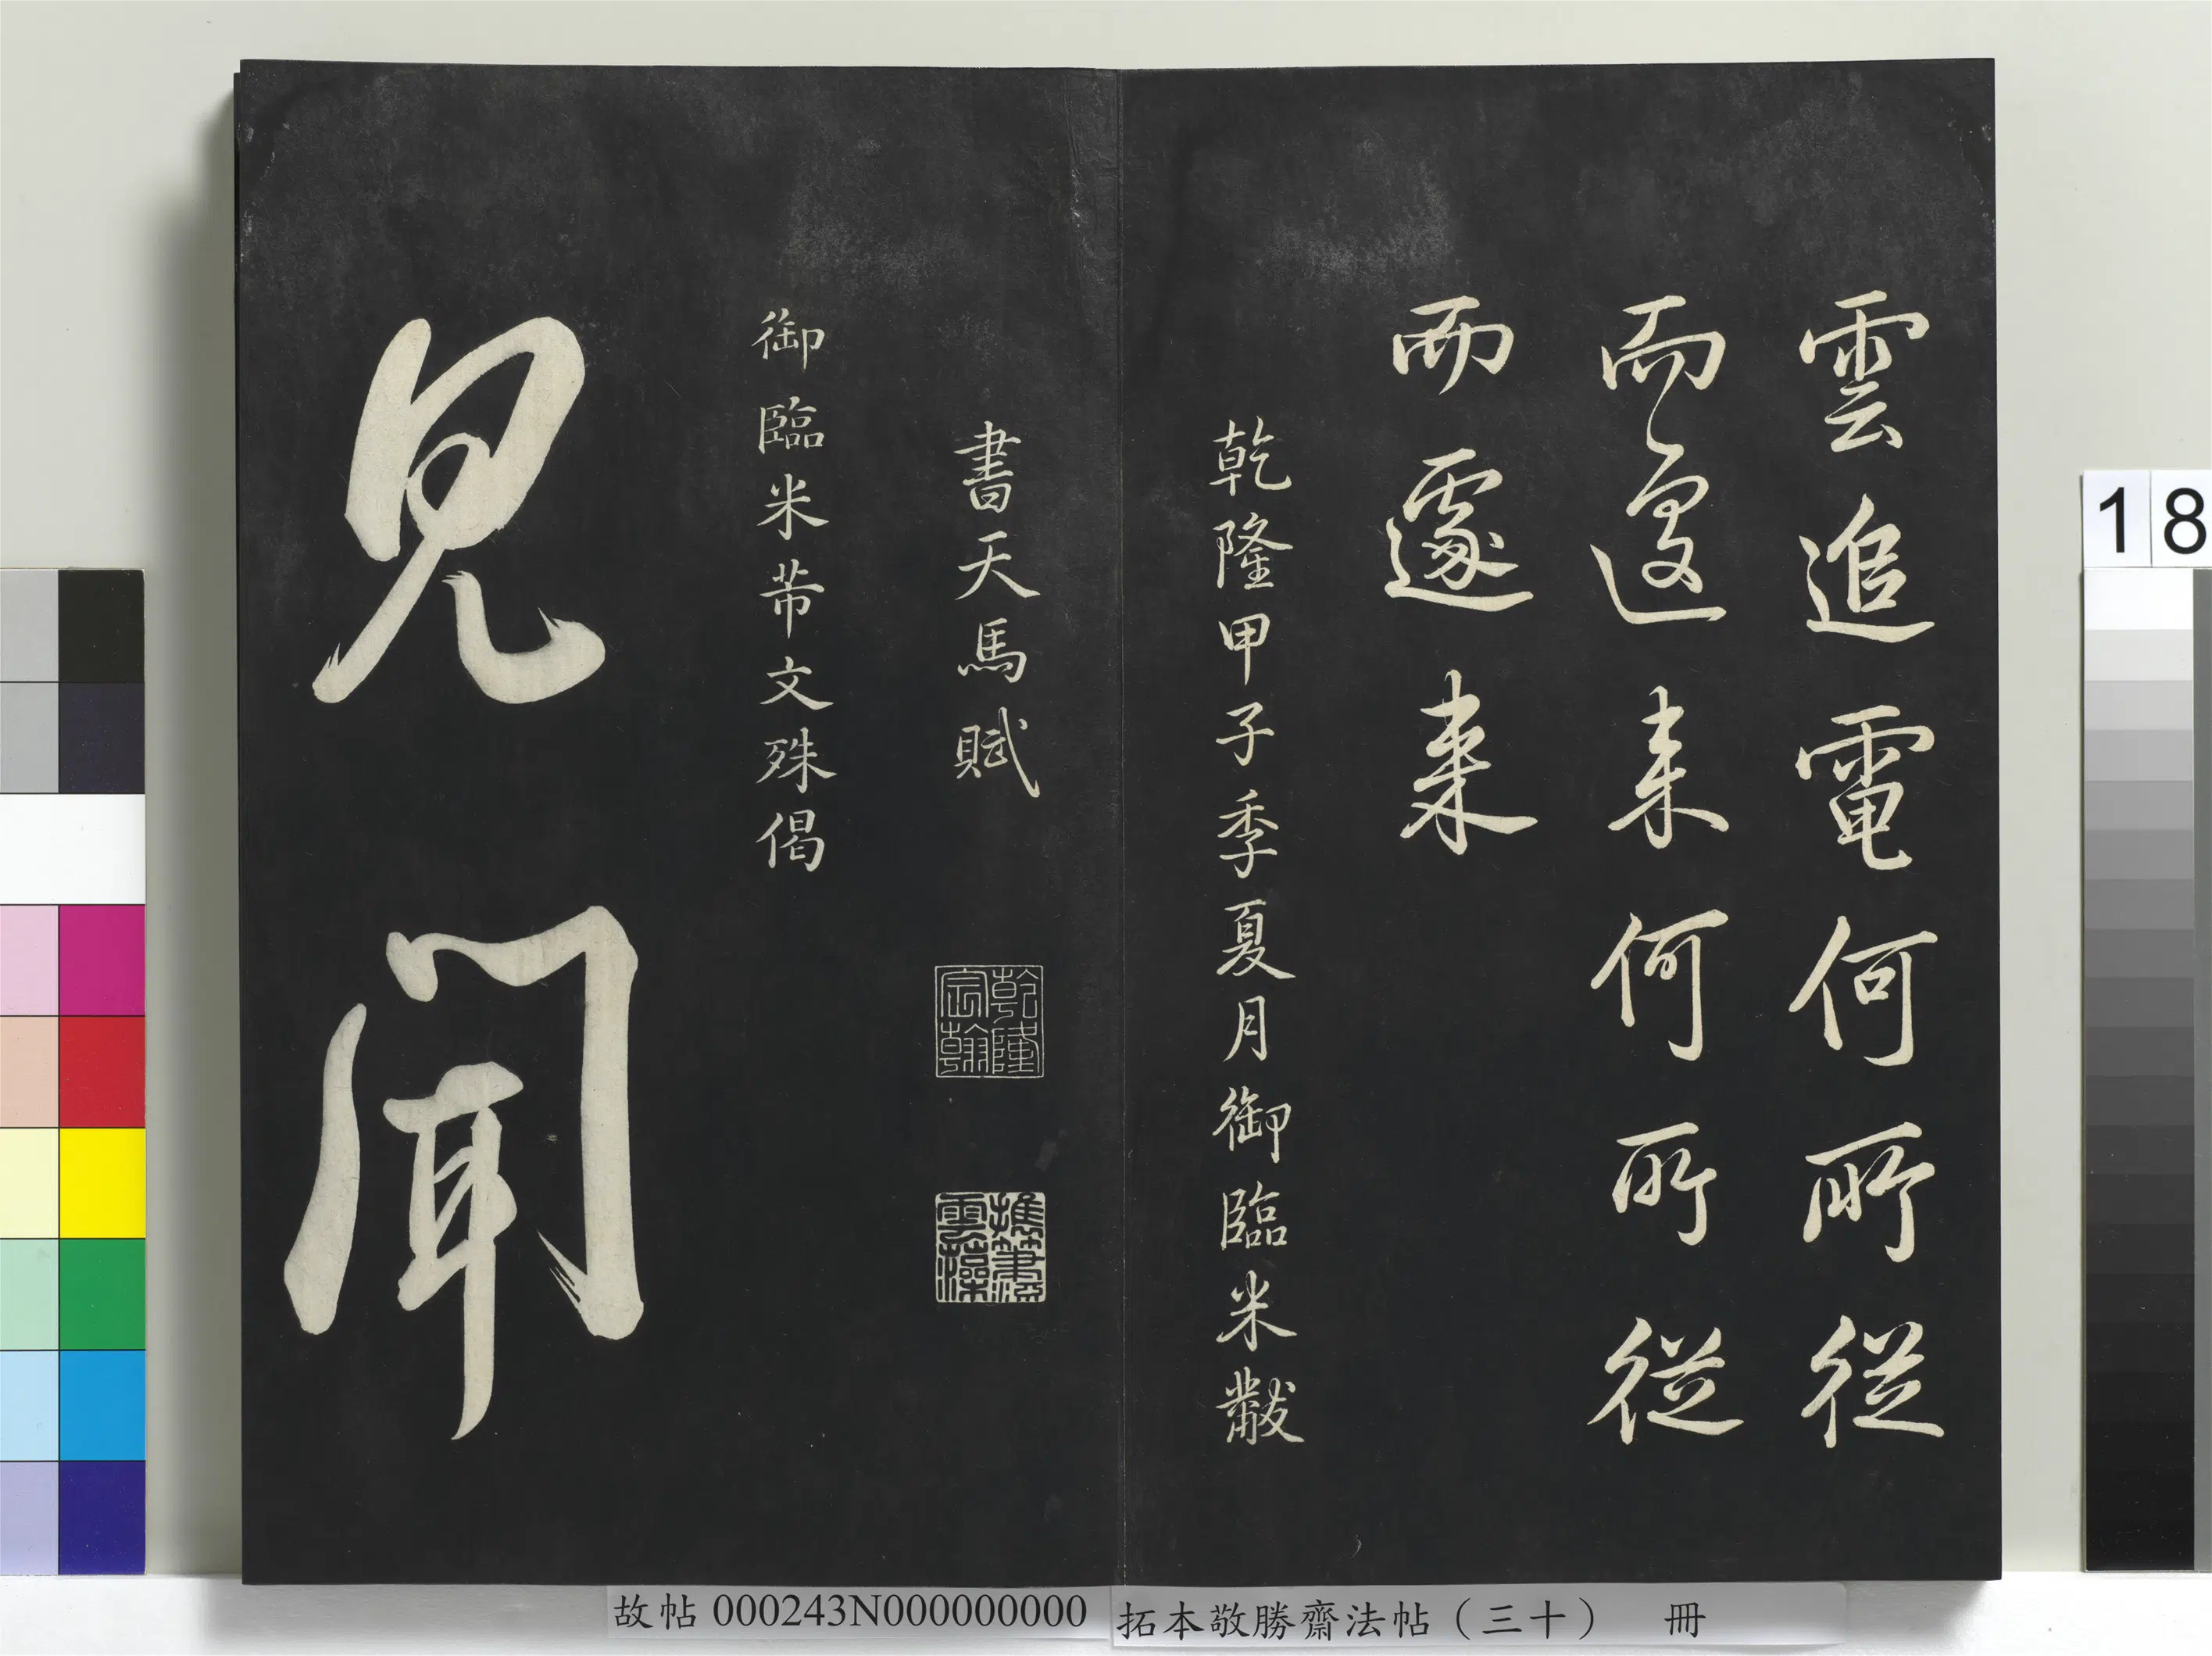 雲追電何所從
而遽来何所從
而遽来
乾隆甲子季夏月御臨米黻
書天馬賦
乾隆宸翰
摛筆流雲藻
御臨米芾文殊偈
見聞
故帖 000243N000000000
拓本敬勝齋法帖（三十） 冊
18